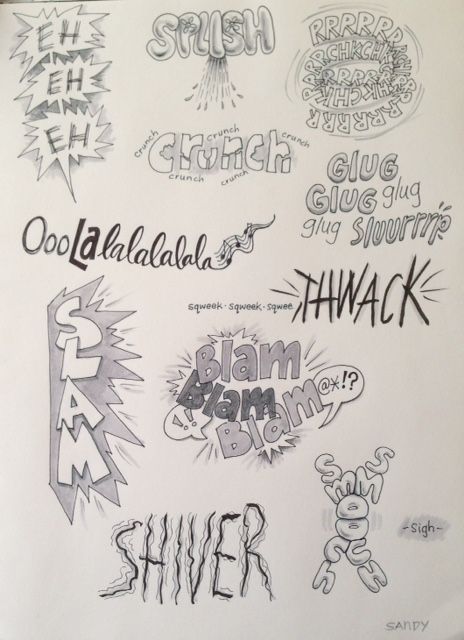 EH
EH
EH
SPLISH
RRRRRR
CHKCHK
RRRRRR
RRRRRR
crunch
crunch
crunch
Crunch
crunch
crunch
GLUG
GLUG glug
glug Sluurrrp
OooLalalalalala
sqweek-sqweek-sqwee
THWACK
SLAM
Blam
Blam
Blam
@*!?
!!
SHIVER
SMOOCH
SMOOCH
-Sigh-
SANDY